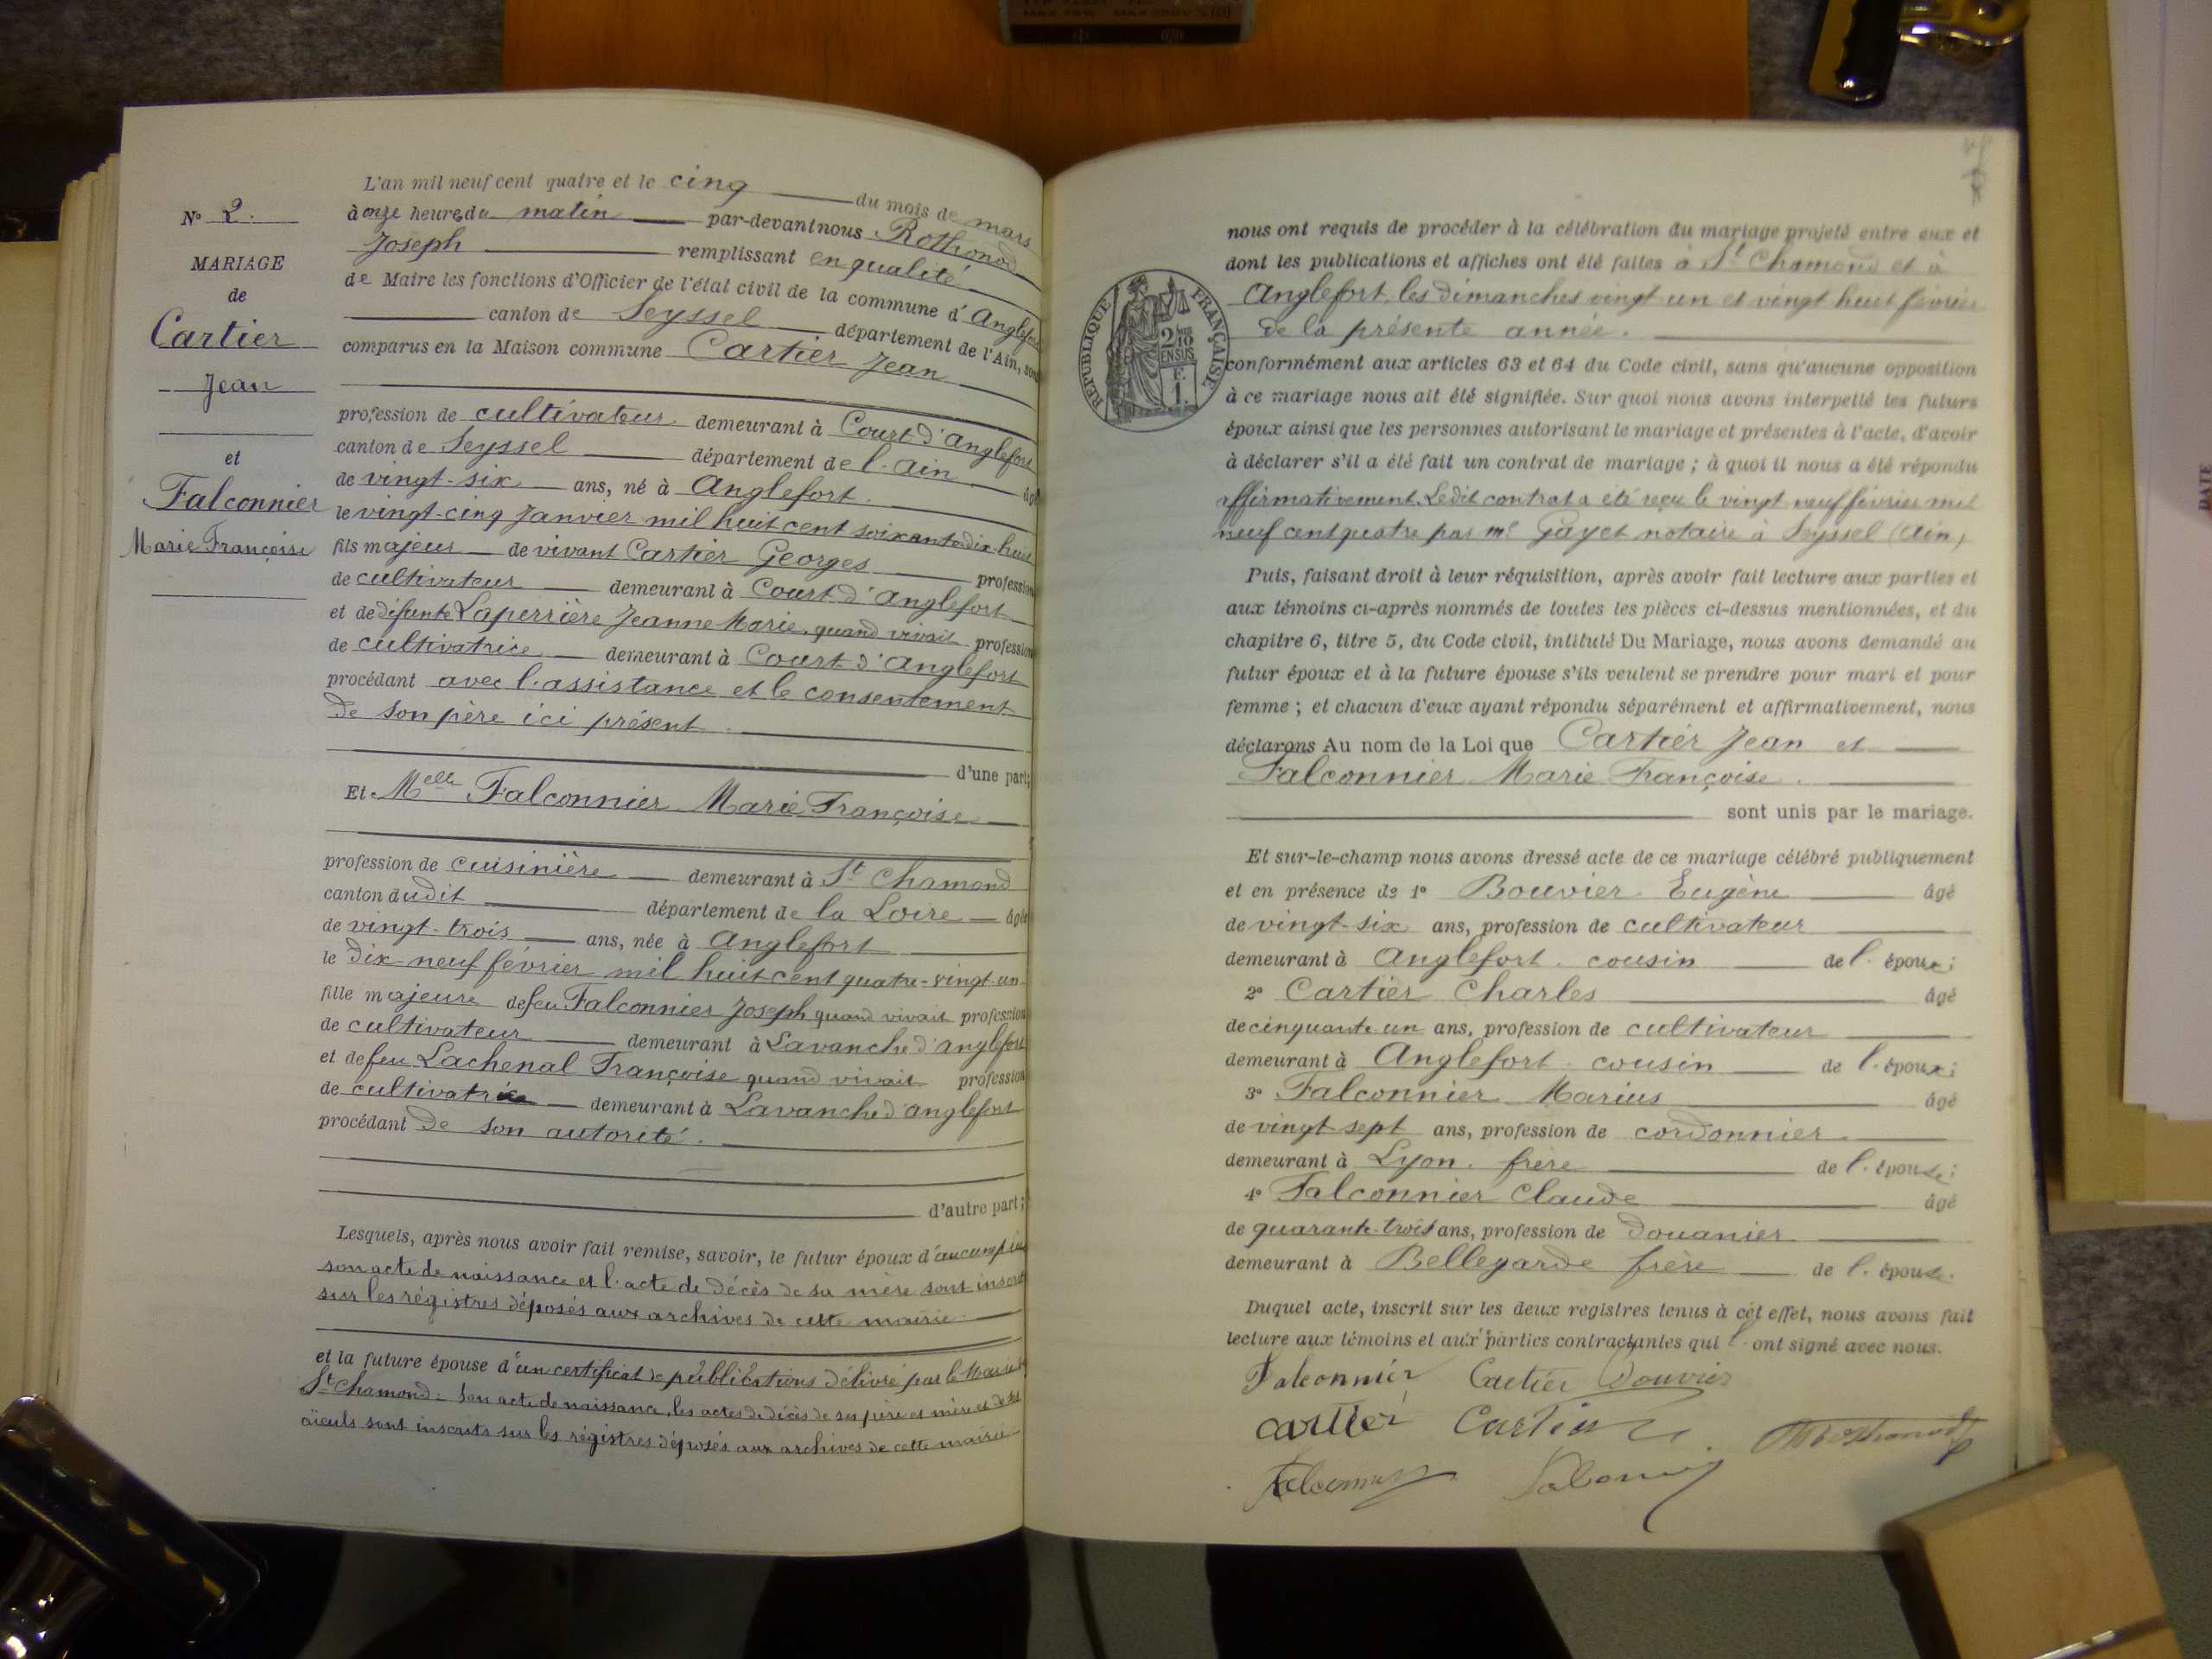 N° 2.
MARIAGE
de
Cartier
Jean
et
Falconnier
Marie Françoise
L'an mil neuf cent quatre et le cinq du mois de mars
à onze heures du matin par-devant nous Rothonod
Joseph remplissant en qualité
de Maire les fonctions d'Officier de l'état civil de la commune d'Anglefort
canton de Seyssel département de l'Ain, sont
comparus en la Maison commune Cartier Jean
profession de cultivateur demeurant à Court d'Anglefort
canton de Seyssel département de l'Ain âgé
de vingt-six ans, né à Anglefort.
le vingt-cinq Janvier mil huit cent soixante dix-huit
fils majeur de vivant Cartier Georges profession
de cultivateur demeurant à Court d'Anglefort
et de défunte Laperrière Jeanne Marie, quand vivait profession
de cultivatrice demeurant à Court d'Anglefort
procédant avec l'assistance et le consentement
de son père ici présent.
d'une part;
Et Melle Falconnier Marie Françoise
profession de cuisinière demeurant à St Chamond
canton dudit département de la Loire âgée
de vingt-trois ans, née à Anglefort
le dix-neuf février mil huit cent quatre-vingt-un
fille majeure de feu Falconnier Joseph quand vivait profession
de cultivateur demeurant à Lavanche d'anglefort
et de feu Lachenal Françoise quand vivait profession
de cultivatrice demeurant à Lavanche d'anglefort
procédant de son autorité.
d'autre part;
Lesquels, après nous avoir fait remise, savoir, le futur époux d'aucune pièce
son acte de naissance et l'acte de décès de sa mère sont inscrits
sur les régistres déposés aux archives de cette mairie.
et la future épouse d'un certificat de publications délivré par le Maire de
St Chamond : Son acte de naissance, les actes de décès de ses père et mère et de ses
aïeuls sont inscrits sur les régistres déposés aux archives de cette mairie
REPUBLIQUE FRANÇAISE
2/10
EN SUS
F.
1.
nous ont requis de procéder à la célébration du mariage projeté entre eux et
dont les publications et affiches ont été faites à St Chamond et à
Anglefort, les dimanches vingt un et vingt huit février
de la présente année.
conformément aux articles 63 et 64 du Code civil, sans qu'aucune opposition
à ce mariage nous ait été signifiée. Sur quoi nous avons interpellé les futurs
époux ainsi que les personnes autorisant le mariage et présentes à l'acte, d'avoir
à déclarer s'il a été fait un contrat de mariage ; à quoi il nous a été répondu
affirmativement. Ledit contrat a été reçu le vingt neuf février mil
neuf cent quatre par me Gayet notaire à Seyssel (Ain)
Puis, faisant droit à leur réquisition, après avoir fait lecture aux parties et
aux témoins ci-après nommés de toutes les pièces ci-dessus mentionnées, et du
chapitre 6, titre 5, du Code civil, intitulé Du Mariage, nous avons demandé au
futur époux et à la future épouse s'ils veulent se prendre pour mari et pour
femme ; et chacun d'eux ayant répondu séparément et affirmativement, nous
déclarons Au nom de la Loi que Cartier Jean et
Falconnier Marie Françoise.
sont unis par le mariage.
Et sur-le-champ nous avons dressé acte de ce mariage célébré publiquement
et en présence de 1° Bouvier Eugène âgé
de vingt-six ans, profession de cultivateur
demeurant à Anglefort. cousin de l'époux;
2° Cartier Charles âgé
de cinquante un ans, profession de cultivateur
demeurant à Anglefort. cousin de l'époux;
3° Falconnier Marius âgé
de vingt sept ans, profession de cordonnier.
demeurant à Lyon. frère de l'épouse;
4° Falconnier Claude âgé
de quarante-trois ans, profession de douanier
demeurant à Bellegarde frère de l'épouse.
Duquel acte, inscrit sur les deux registres tenus à cet effet, nous avons fait
lecture aux témoins et aux parties contractantes qui l'ont signé avec nous.
Falconnier Cartier Bouvier
Cartier Cartier Rothonod
Falconnier Falconnier
DATE